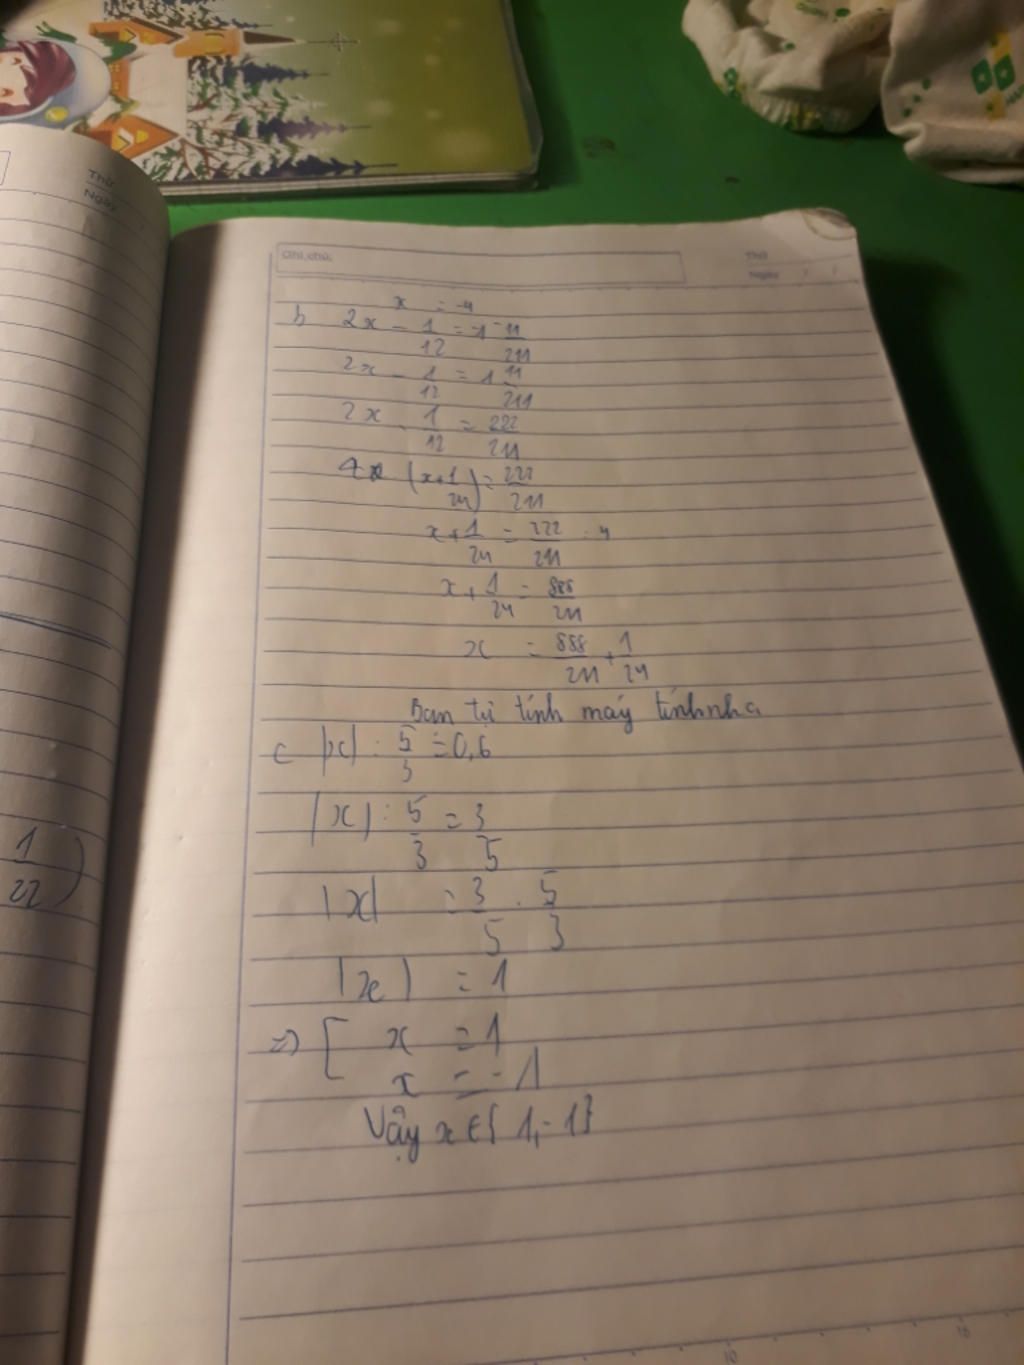 Thứ
Ngày
Ghi chú:
Thứ
Ngày / /
x = -4
b 2x - 1/12 = -1 - 11/211
2x - 1/12 = 1 11/211
2x - 1/12 = 222/211
(x+1/24) = 222/211
x + 1/24 = 222/211 : 4
x + 1/24 = 888/211
x = 888/211 + 1/24
Bạn tự tính máy tính nha
c |x| : 5/3 = 0,6
|x| : 5/3 = 3/5
|x| = 3/5 . 5/3
|x| = 1
=> [ x = 1
x = -1
Vậy x ∈ { 1, -1}
1/22 )
10
15